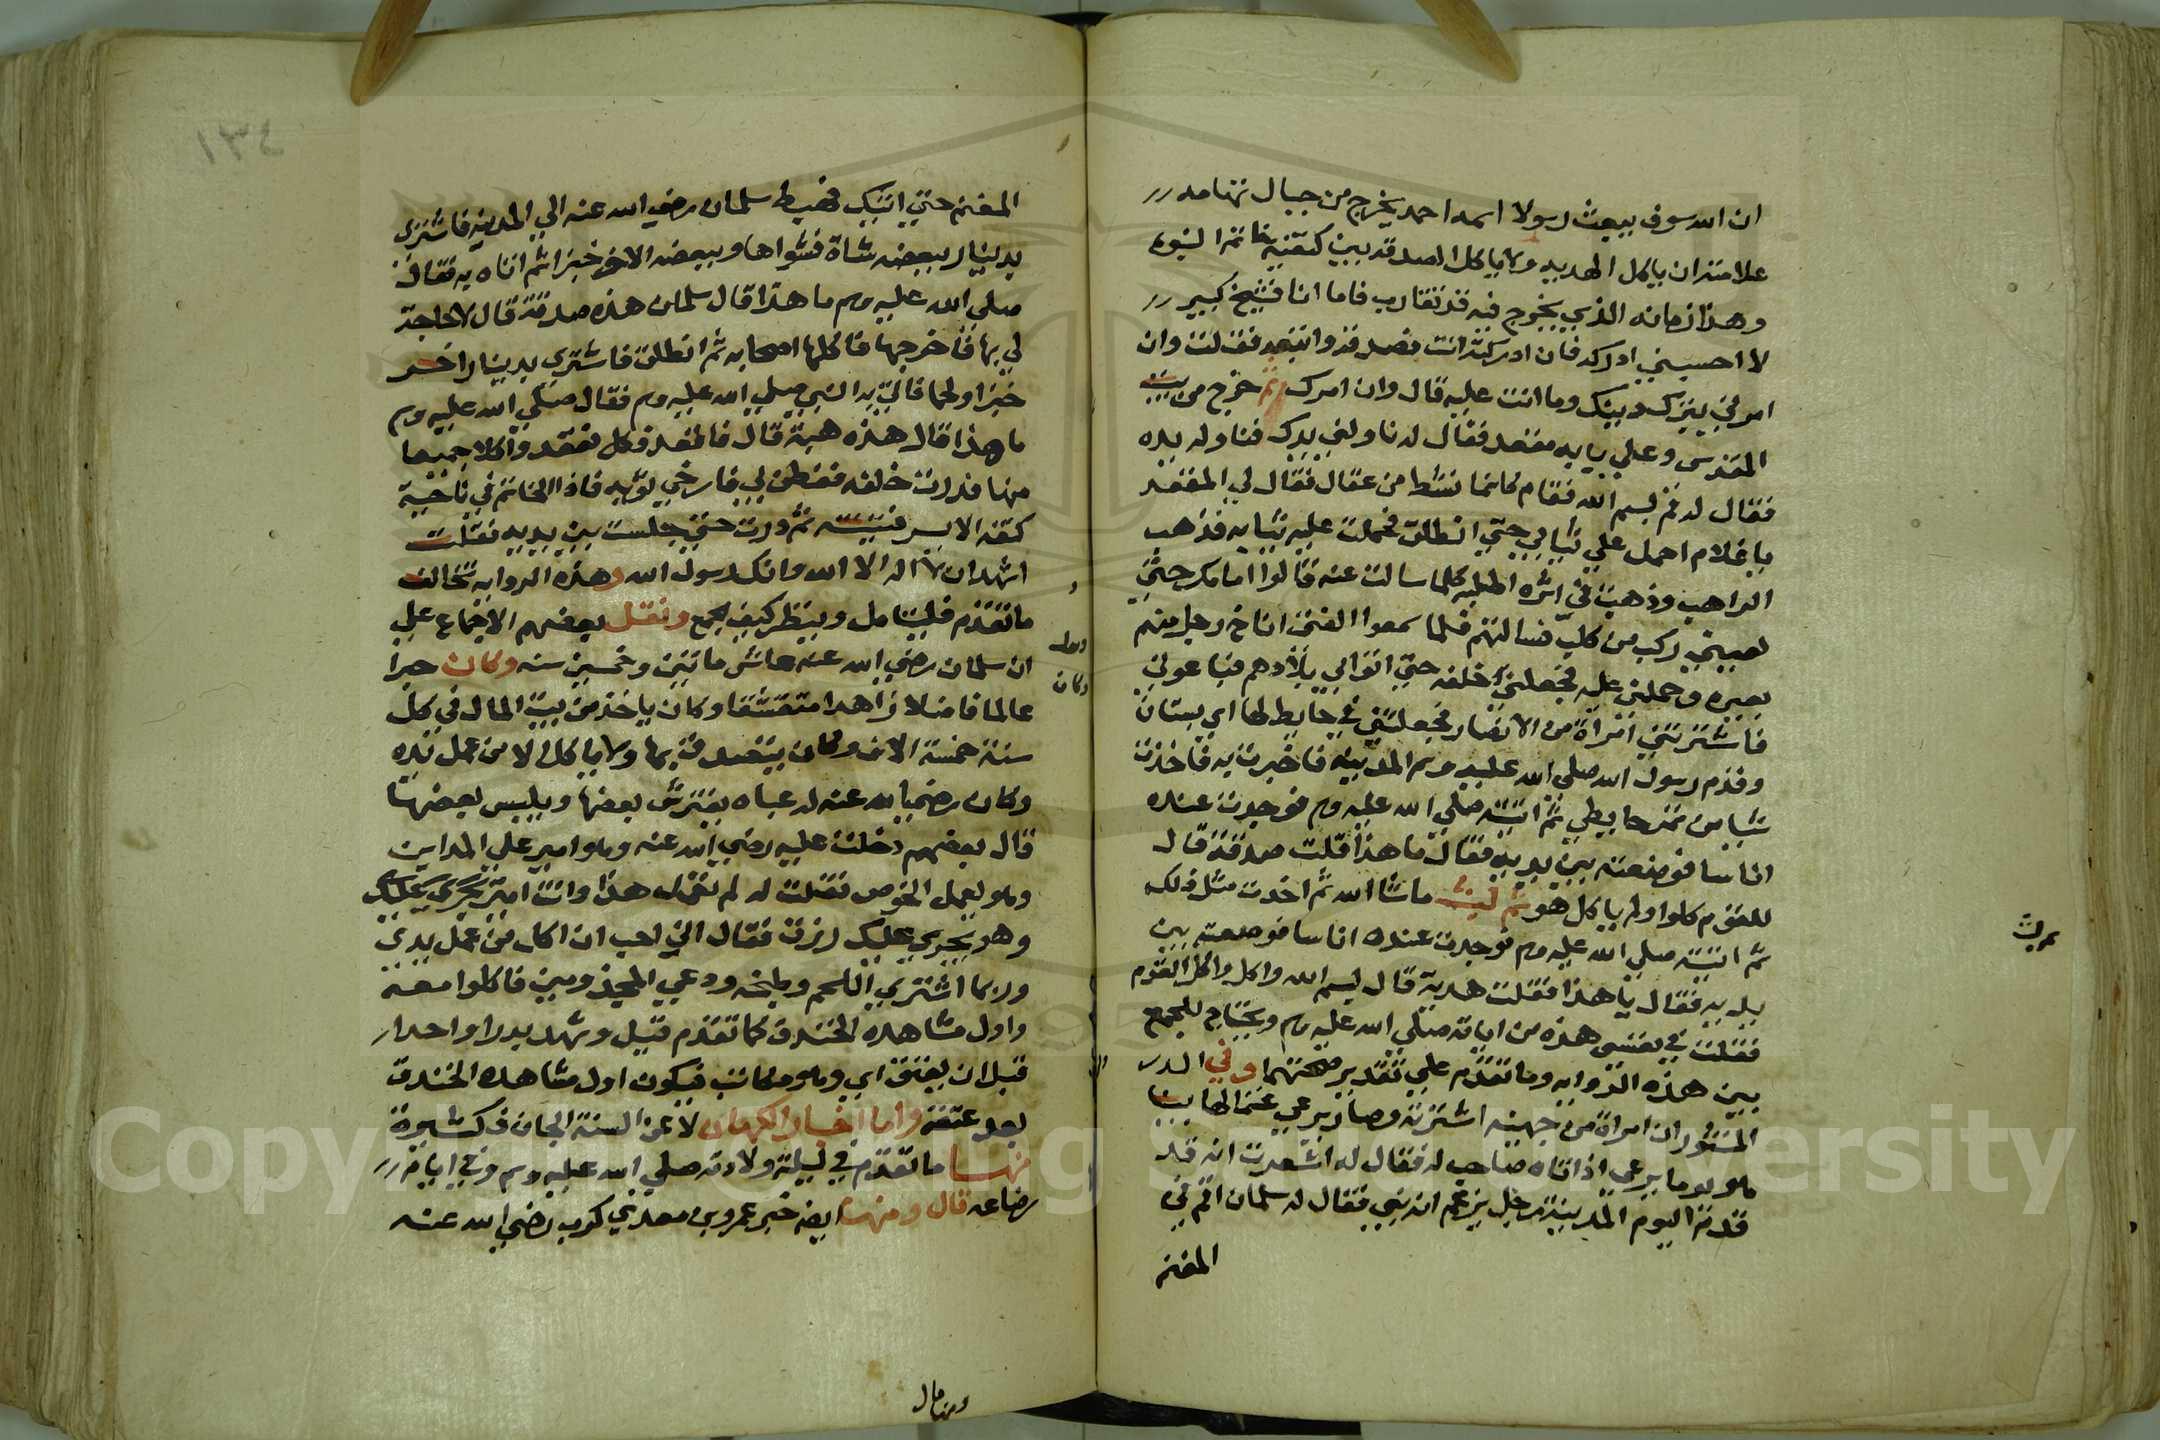 ان الله سوف يبعث رسولا اسمه احمد يخرج من جبال تهامه
علامته ان ياكل الهديه ولا ياكل الصدقه بين كتفيه خاتم النبوه
وهذا زمانه الذي يخرج فيه قد تقارب فاما انا فشيخ كبير
لا احسبني ادركه فان ادركته انت فصدقه واتبعه فقلت وان
امرني بترك دينك وما انت عليه قال وان امرك ثم خرج من بيت
المقدس وعلي بابه مقعد فقال له ناولني يدك فناوله يده
فقال له قم بسم الله فقام كانما نشط من عقال فقال لي المقعد
يا غلام احمل علي ثيابي حتي انطلق فحملت عليه ثيابه فذهب
الراهب وذهبت في اثره اطلبه كلما سالت عنه قالوا امامك حتي
لقيني ركب من كلب فسالتهم فلما سمعوا الفتي اناخ رجل منهم
بعيره وحملني عليه فجعلني خلفه حتي اتوا بي بلادهم فباعوني
فاشترتني امراة من الانصار فجعلتني في حايط لها اي بستان
وقدم رسول الله صلي الله عليه وسلم المدينه فاخبرت به فاخذت
شيا من تمر حايطي ثم اتيته صلي الله عليه وسلم فوجدت عنده
اناسا فوضعته بين يديه فقال ما هذا قلت صدقة قال
للقوم كلوا ولم ياكل هو ثم لبثت ماشا الله ثم اخذت مثل ذلك
ثم اتيته صلي الله عليه وسلم فوجدت عنده اناسا فوضعته بين
يديه فقال ما هذا فقلت هدية قال بسم الله واكل واكل القوم
فقلت في نفسي هذه من اياته صلي الله عليه وسلم ويحتاج للجمع
بين هذه الروايه وما تقدم علي تقدير صحتهما وفي الدر
المنثور ان امراة من جهينه اشترته وصار يرعي غنما لها بينا
هو يوما يرعي اذ اتاه صاحب له فقال له اشعرت انه قد
قدم اليوم المدينة رجل يزعم انه نبي فقال له سلمان اقم في
الغنم
١٣٤
الغنم حتي اتيك فهبط سلمان رضي الله عنه الي المدينه فاشتري
بدينار ببعضه شاة فشواها وببعضه الاخر خبزا ثم اتاه به فقال
صلي الله عليه وسلم ما هذا قال سلمان هذه صدقة قال لا حاجة
لي بها فاخرجها فاكلها اصحابه ثم انطلق فاشتري بدينار اخر
خبزا ولحما فاتي به النبي صلي الله عليه وسلم فقال صلي الله عليه وسلم
ما هذا قال هذه هبة قال فاقعد فكل فقعد واكلا جميعا
منها فدرات خلفه ففطن لي فارخي ثوبه فاذا الخاتم في ناحية
كتفه الايسر فتبينته ثم درت حتي جلست بين يديه فقلت
اشهد ان لا اله الا الله وانك رسول الله وهذه الروايه تخالف
ما تقدم فليتامل وينظر كيف الجمع ونقل بعضهم الاجماع علي
ان سلمان رضي الله عنه عاش ماتين وخمسين سنه وكان حبرا
عالما فاضلا زاهدا متقشفا وكان ياخذ من بيت المال في كل
سنة خمسة الاف وكان يتصدق بها ولا ياكل الا من عمل يده
وكان رضي الله عنه له عباه يفترش بعضها ويلبس بعضها
قال بعضهم دخلت عليه رضي الله عنه وهو امير علي المداين
وهو يعمل الخوص فقلت له لم تعمل هذا وانت امير يجري عليك
وهو يجري عليك رزق فقال اني احب ان اكل من عمل يدي
وربما اشتري اللحم وطبخه ودعي المجذومين فاكلوا معه
واول مشاهده الخندق كما تقدم قيل وشهد بدرا واحدا
قبل ان يعتق اي وهو مكاتب فيكون اول مشاهده الخندق
بعد عتقه واما اخبار الكهان لا عن السنة الجان فكثيرة
منها ما تقدم في ليلة ولادته صلي الله عليه وسلم وفي ايام
رضاعه قال ومنها ايضه خبر عمرو بن معدي كرب رضي الله عنه
وكان
ومنها قال
Copyright © King Saud University